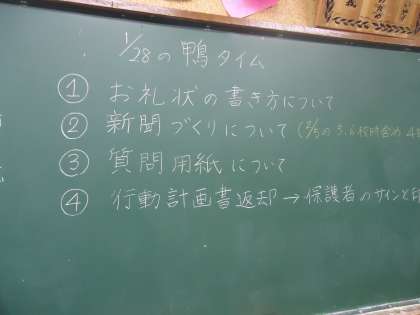 1/28の鴨タイム
① お礼状の書き方について
② 新聞づくりについて(2/5の5、6校時含め4
③ 質問用紙について
④ 行動計画書返却→保護者のサインと印